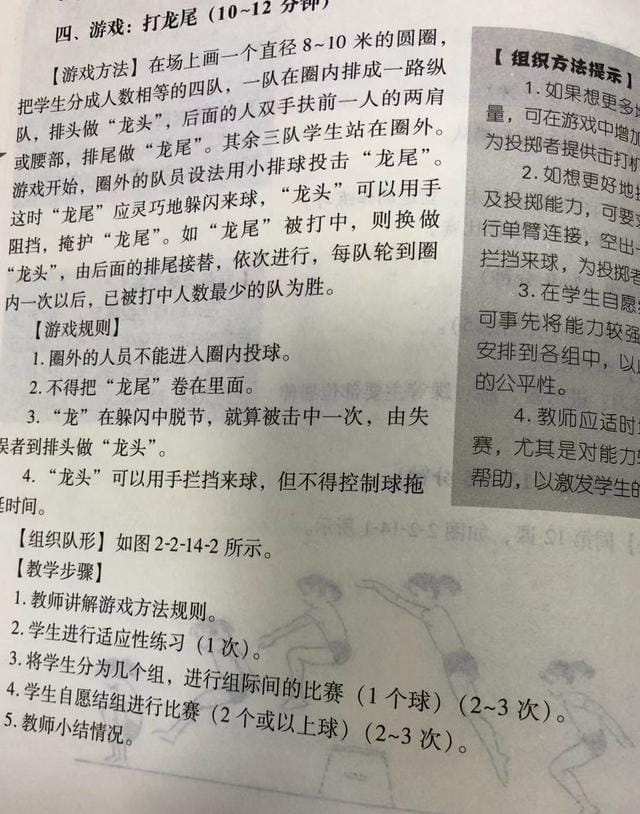 四、游戏：打龙尾（10~12 分钟）
【游戏方法】在场上画一个直径 8~10 米的圆圈，
把学生分成人数相等的四队，一队在圈内排成一路纵
队，排头做“龙头”，后面的人双手扶前一人的两肩
或腰部，排尾做“龙尾”。其余三队学生站在圈外。
游戏开始，圈外的队员设法用小排球投击“龙尾”。
这时“龙尾”应灵巧地躲闪来球，“龙头”可以用手
阻挡，掩护“龙尾”。如“龙尾”被打中，则换做
“龙头”，由后面的排尾接替，依次进行，每队轮到圈
内一次以后，已被打中人数最少的队为胜。
【游戏规则】
1. 圈外的人员不能进入圈内投球。
2. 不得把“龙尾”卷在里面。
3. “龙”在躲闪中脱节，就算被击中一次，由失
误者到排头做“龙头”。
4. “龙头”可以用手拦挡来球，但不得控制球拖
延时间。
【组织队形】如图 2-2-14-2 所示。
【教学步骤】
1. 教师讲解游戏方法规则。
2. 学生进行适应性练习（1 次）。
3. 将学生分为几个组，进行组际间的比赛（1 个球）（2~3 次）。
4. 学生自愿结组进行比赛（2 个或以上球）（2~3 次）。
5. 教师小结情况。
【组织方法提示】
1. 如果想更多地
量，可在游戏中增加
为投掷者提供击打机
2. 如想更好地
及投掷能力，可要
行单臂连接，空出一
拦挡来球，为投掷者
3. 在学生自愿结
可事先将能力较强
安排到各组中，以
的公平性。
4. 教师应适时
赛，尤其是对能力
帮助，以激发学生的